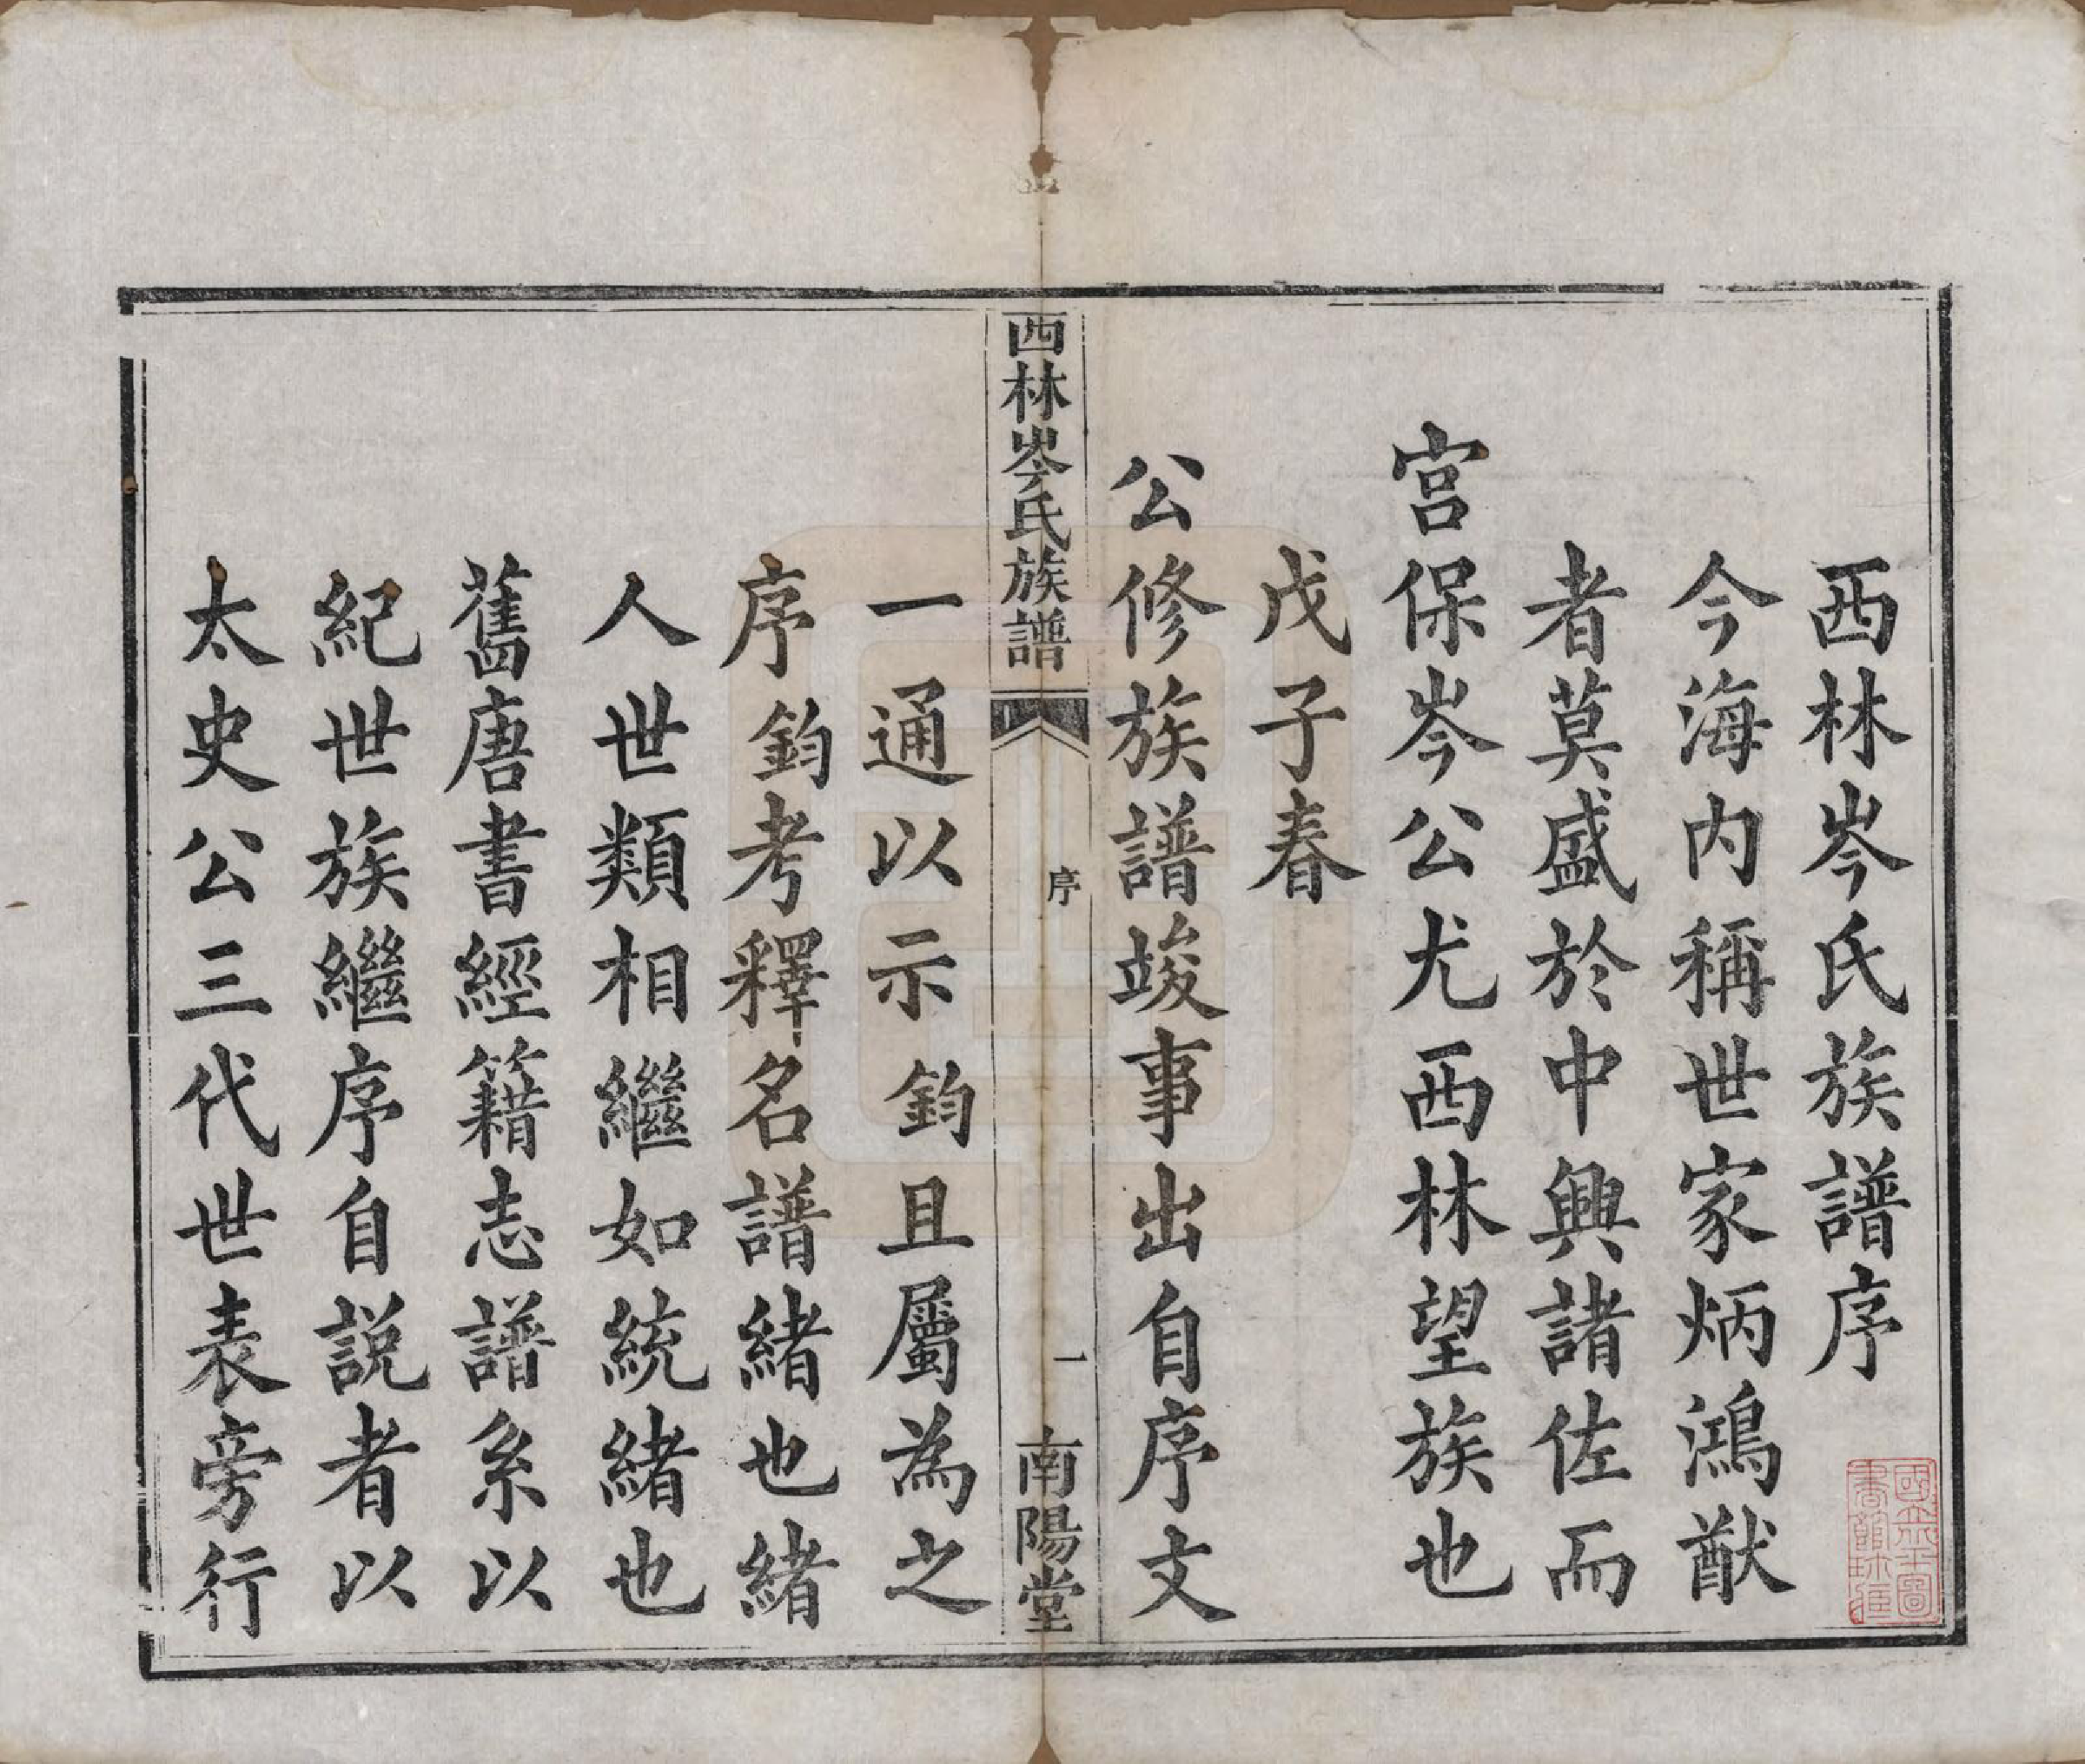 西林岑氏族譜序
今海内稱世家炳鴻猷
者莫盛於中興諸佐而
宫保岑公尤西林望族也
戊子春
公修族譜竣事出自序文
西林岑氏族譜
序
一
南陽堂
一通以示鈞且屬為之
序鈞考釋名譜緒也緒
人世類相繼如統緒也
舊唐書經籍志譜系以
紀世族繼序自説者以
太史公三代世表旁行
國立北平圖
書館珍藏